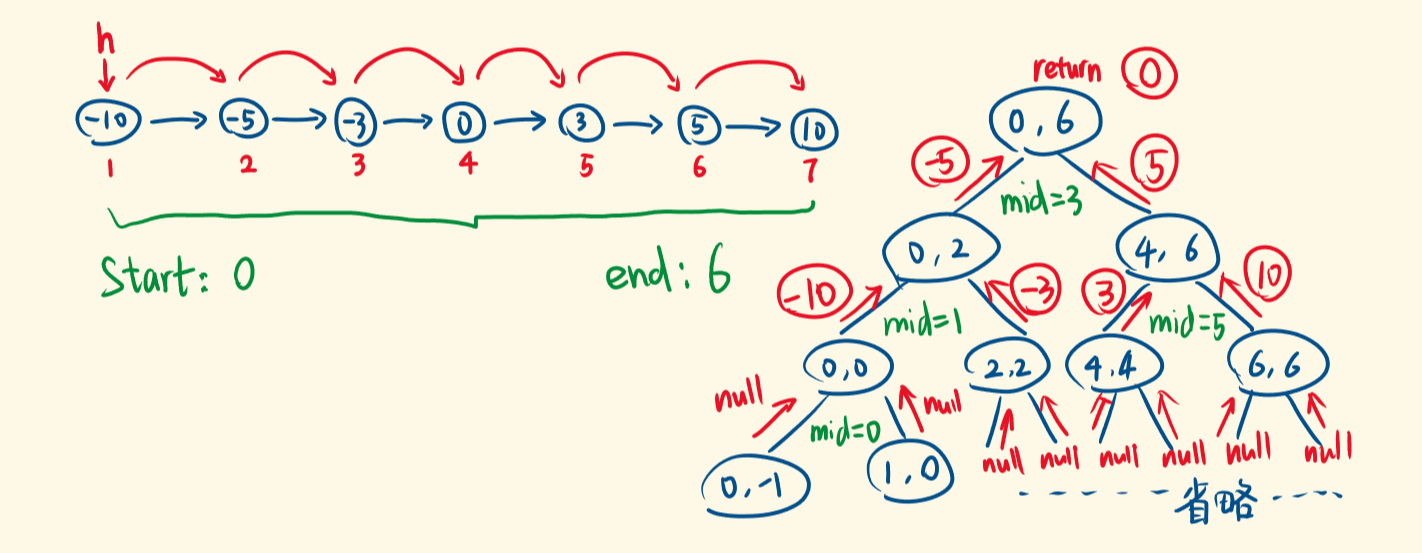 h
-10 -5 -3 0 3 5 10
1 2 3 4 5 6 7
Start: 0 end: 6
return 0
0,6
-5 5
mid=3
0,2 4,6
-10 -3 3 10
mid=1 mid=5
0,0 2,2 4.4 6,6
null null
mid=0
null null null null null null
0,-1 1,0
省略